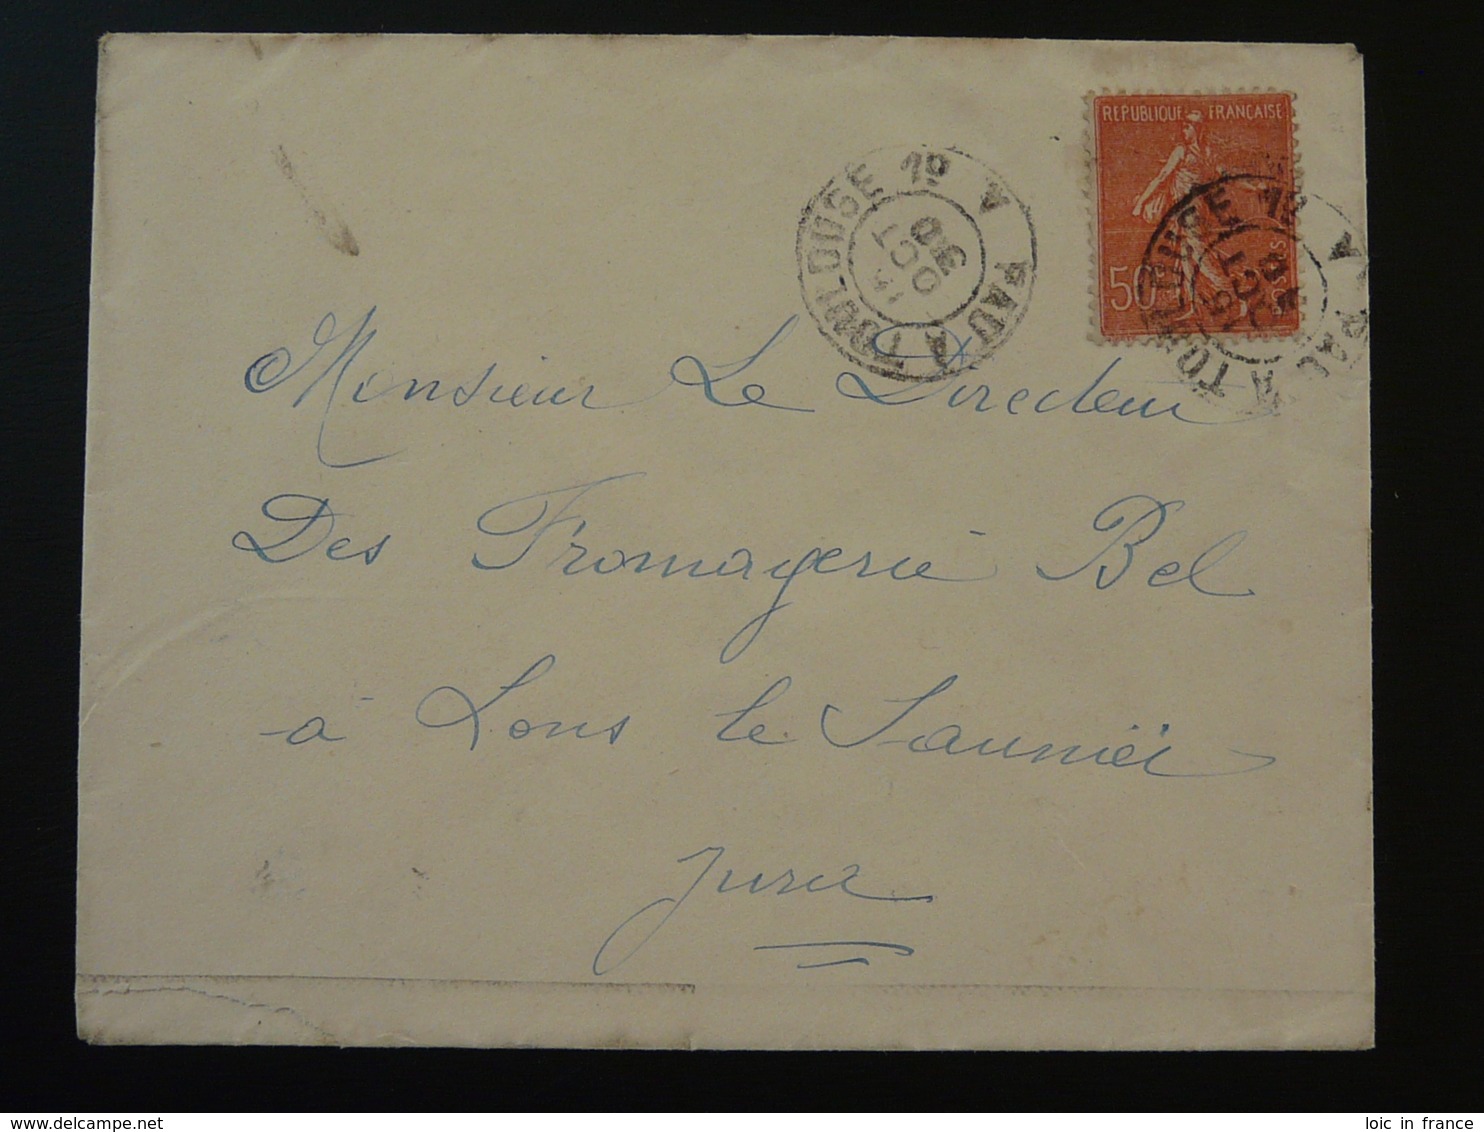 REPUBLIQUE FRANÇAISE
50c
PAU A TOULOUSE 1º A
15
OCT
30
PAU A TOULOUSE 1º A
15
OCT
30
Monsieur Le Directeur
Des Fromagerie Bel
à Lons le Saunier
Jura
loic in france